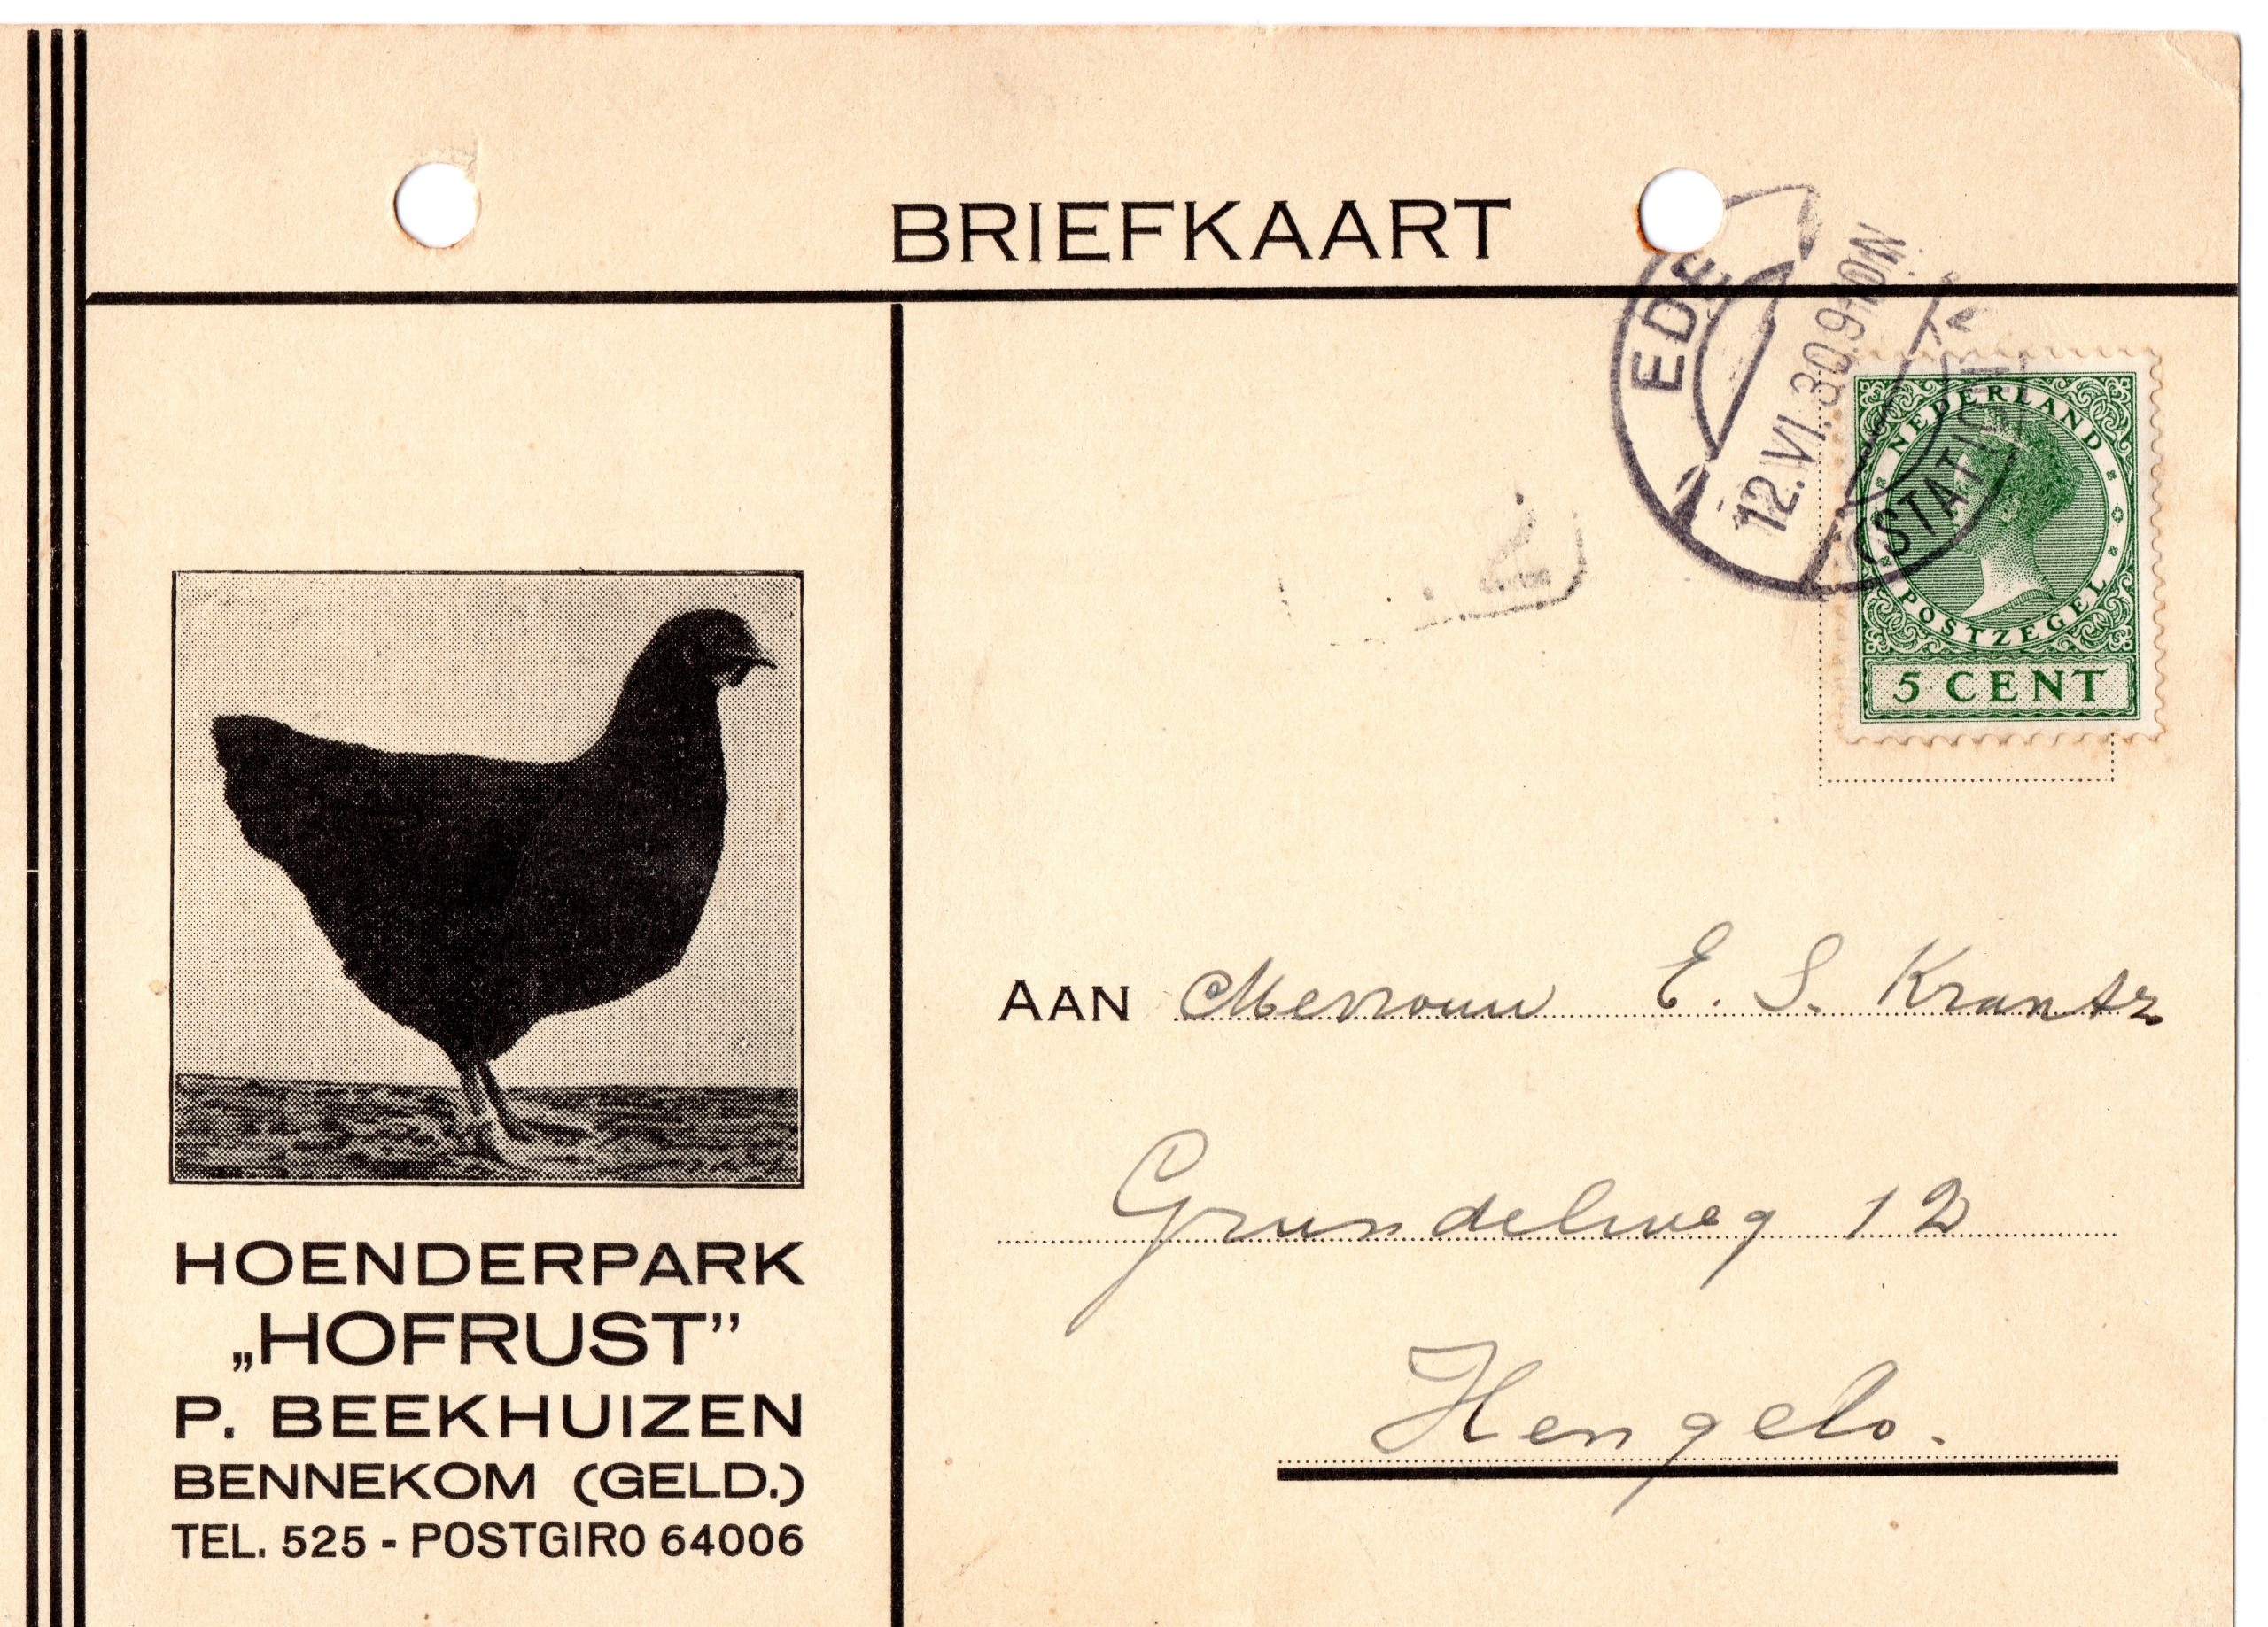 BRIEFKAART
EDE
12.VI.30.9-10N
STATION
NEDERLAND
POSTZEGEL
5 CENT
AAN Mevrouw E. S. Krantz
Grundelweg 12
Hengelo.
HOENDERPARK
„HOFRUST”
P. BEEKHUIZEN
BENNEKOM (GELD.)
TEL. 525 - POSTGIRO 64006